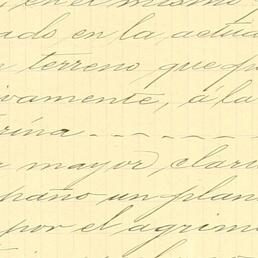 en el mismo
ado en la actua
terreno que
ivamente, á la
trina - - - - -
mayor, clari
paño un plan
por el agrime